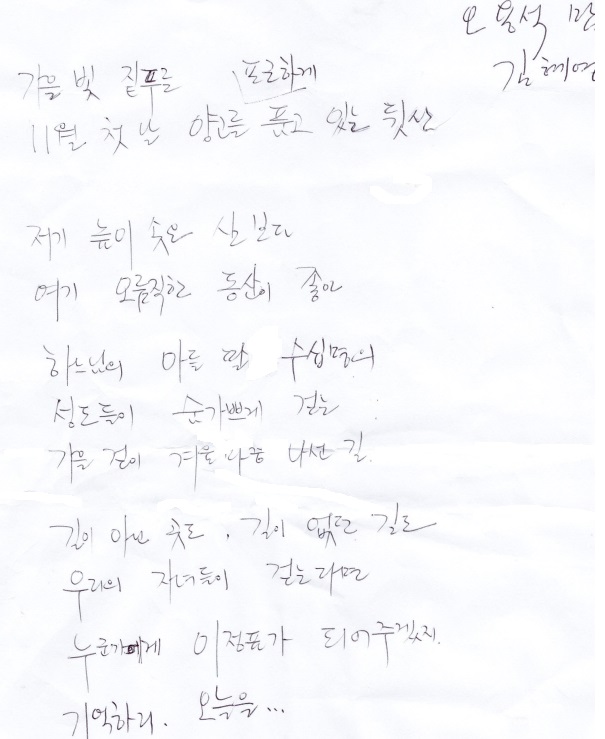 오용석
김혜영
가을 빛 짙푸른 포근하게
11월 첫 날 품고 있는 뒷산
저기 높이 솟은 산 보다
여기 오름직한 동산이 좋아
하느님의 아들 딸 수십명의
성도들이 숨가쁘게 걷는
가을 길이 겨울 나선 길.
길이 아닌 곳도, 길이 없던 길도
우리의 자녀들이 걷는다면
누군가에게 이정표가 되어주겠지.
기억하리. 오늘을...